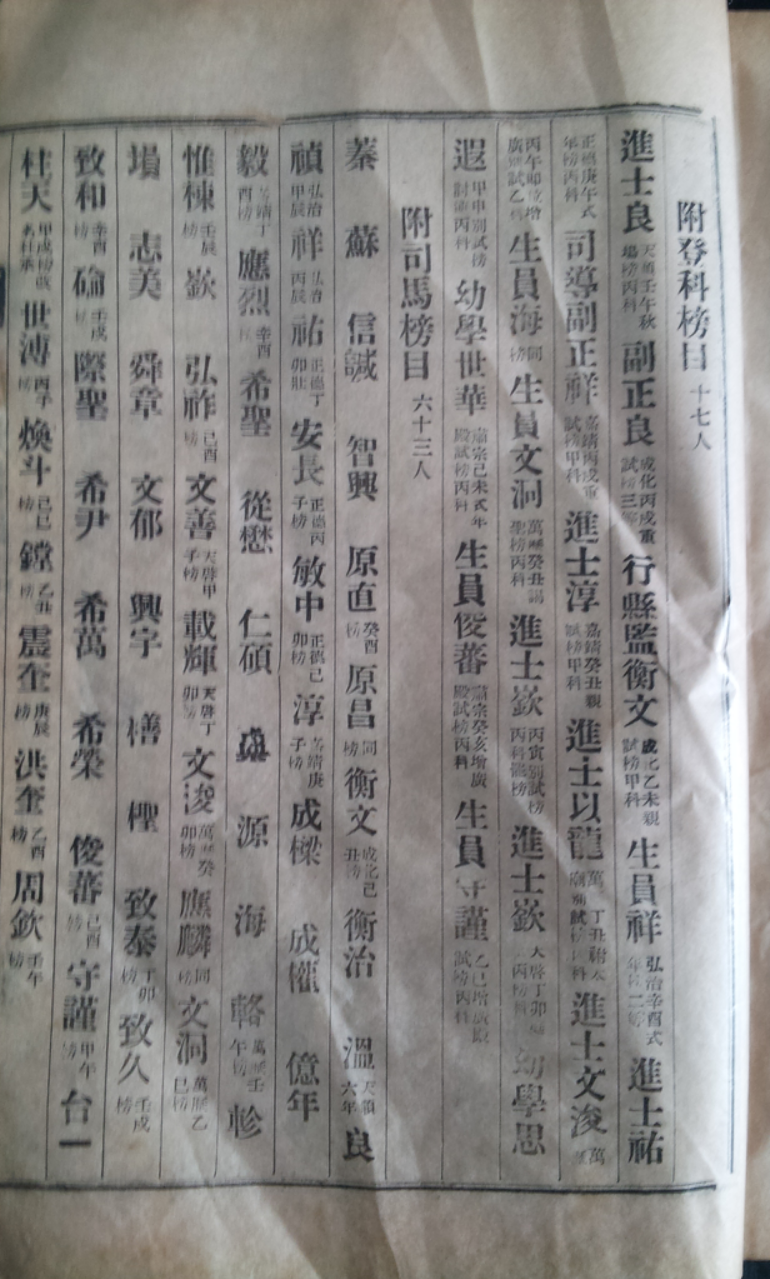 附登科榜目 十七人
進士良 天順壬午秋場榜丙科 副正良 成化丙戌重試榜三等 行縣監衡文 成化乙未親試榜甲科 生員祥 弘治辛酉式年榜二等 進士祐
正德庚午式年榜丙科 司導副正祥 嘉靖丙戌重試榜甲科 進士淳 嘉靖癸丑親試榜甲科 進士以龍 萬 丁丑謝 科 進士文浚 萬
丙午 增廣 試乙科 生員海 同榜 生員文洞 萬曆癸丑謁聖榜丙科 進士嶔 丙寅別試榜丙科 榜 進士嶔 丁卯 丙榜 幼學思
遐 甲申別試榜 討 丙科 幼學世華 肅宗己未式年殿試榜丙科 生員俊蕃 肅宗癸亥增廣殿試榜丙科 生員守謹 乙巳增廣殿試榜丙科
附司馬榜目 六十三人
蓁 蘇 信誠 智興 原直 癸酉榜 原昌 同榜 衡文 成化己丑榜 衡治 溫 天順六年 良
禎 弘治甲辰 祥 弘治丙辰 祐 正德丁卯 安長 正德丙子榜 敏中 正德己卯榜 淳 嘉靖庚子榜 成樑 成權 億年
毅 嘉靖丁酉榜 應烈 辛酉榜 希聖 從懋 仁碩 源 海 輅 萬曆壬午榜 軫
惟棟 壬辰榜 嶔 弘祚 己酉榜 文善 天啓甲子榜 載輝 天啓丁卯榜 文浚 萬曆癸卯榜 應麟 同榜 文洞 萬曆乙巳榜
塤 志美 舜章 文郁 興宇 檣 檉 致泰 丁卯榜 致久 壬戌榜
致和 辛酉榜 碖 壬戌榜 際聖 希尹 希萬 希榮 俊蕃 己酉榜 守謹 甲午榜 台一
柱天 甲戌榜 世溥 丙子榜 煥斗 己巳榜 鏜 乙丑榜 震奎 庚辰榜 洪奎 乙酉榜 周欽 壬午榜